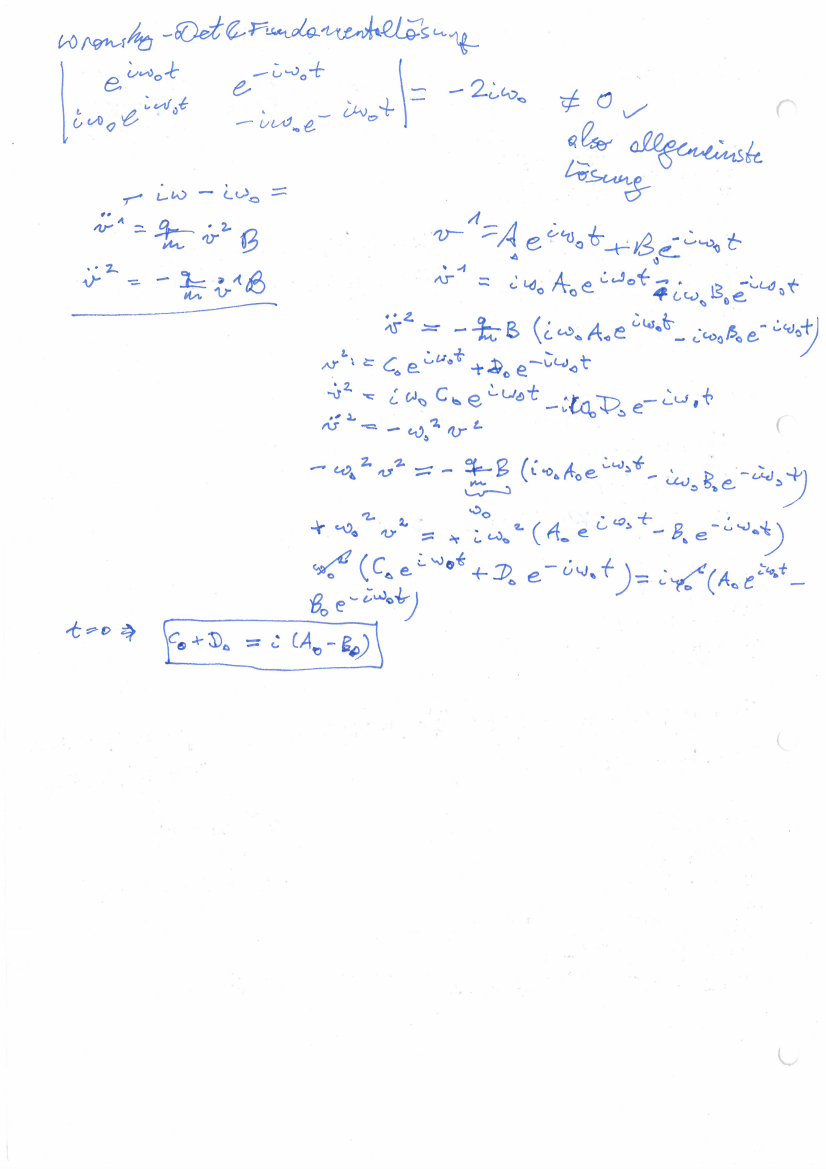 Wronsky-Det & Fundamentallösung
| e^{iω₀t}  e^{-iω₀t} |
| iω₀e^{iω₀t}  -iω₀e^{-iω₀t} | = -2iω₀ ≠ 0 ✓
also allgemeinste
Lösung
- iω - iω₀ =
v̈¹ = q/m v̇² B
v̈² = - q/m v̇¹ B
v¹ = A₀e^{iω₀t} + B₀e^{-iω₀t}
v̇¹ = iω₀A₀e^{iω₀t} - iω₀B₀e^{-iω₀t}
v̈² = - q/m B (iω₀A₀e^{iω₀t} - iω₀B₀e^{-iω₀t})
v² := C₀e^{iω₀t} + D₀e^{-iω₀t}
v̇² = iω₀C₀e^{iω₀t} - iω₀D₀e^{-iω₀t}
v̈² = -ω₀² v²
-ω₀² v² = - q/m B (iω₀A₀e^{iω₀t} - iω₀B₀e^{-iω₀t})
ω₀
+ω₀² v² = + iω₀² (A₀e^{iω₀t} - B₀e^{-iω₀t})
ω₀² (C₀e^{iω₀t} + D₀e^{-iω₀t}) = iω₀² (A₀e^{iω₀t} -
B₀e^{-iω₀t})
t=0 ⇒ C₀ + D₀ = i (A₀ - B₀)